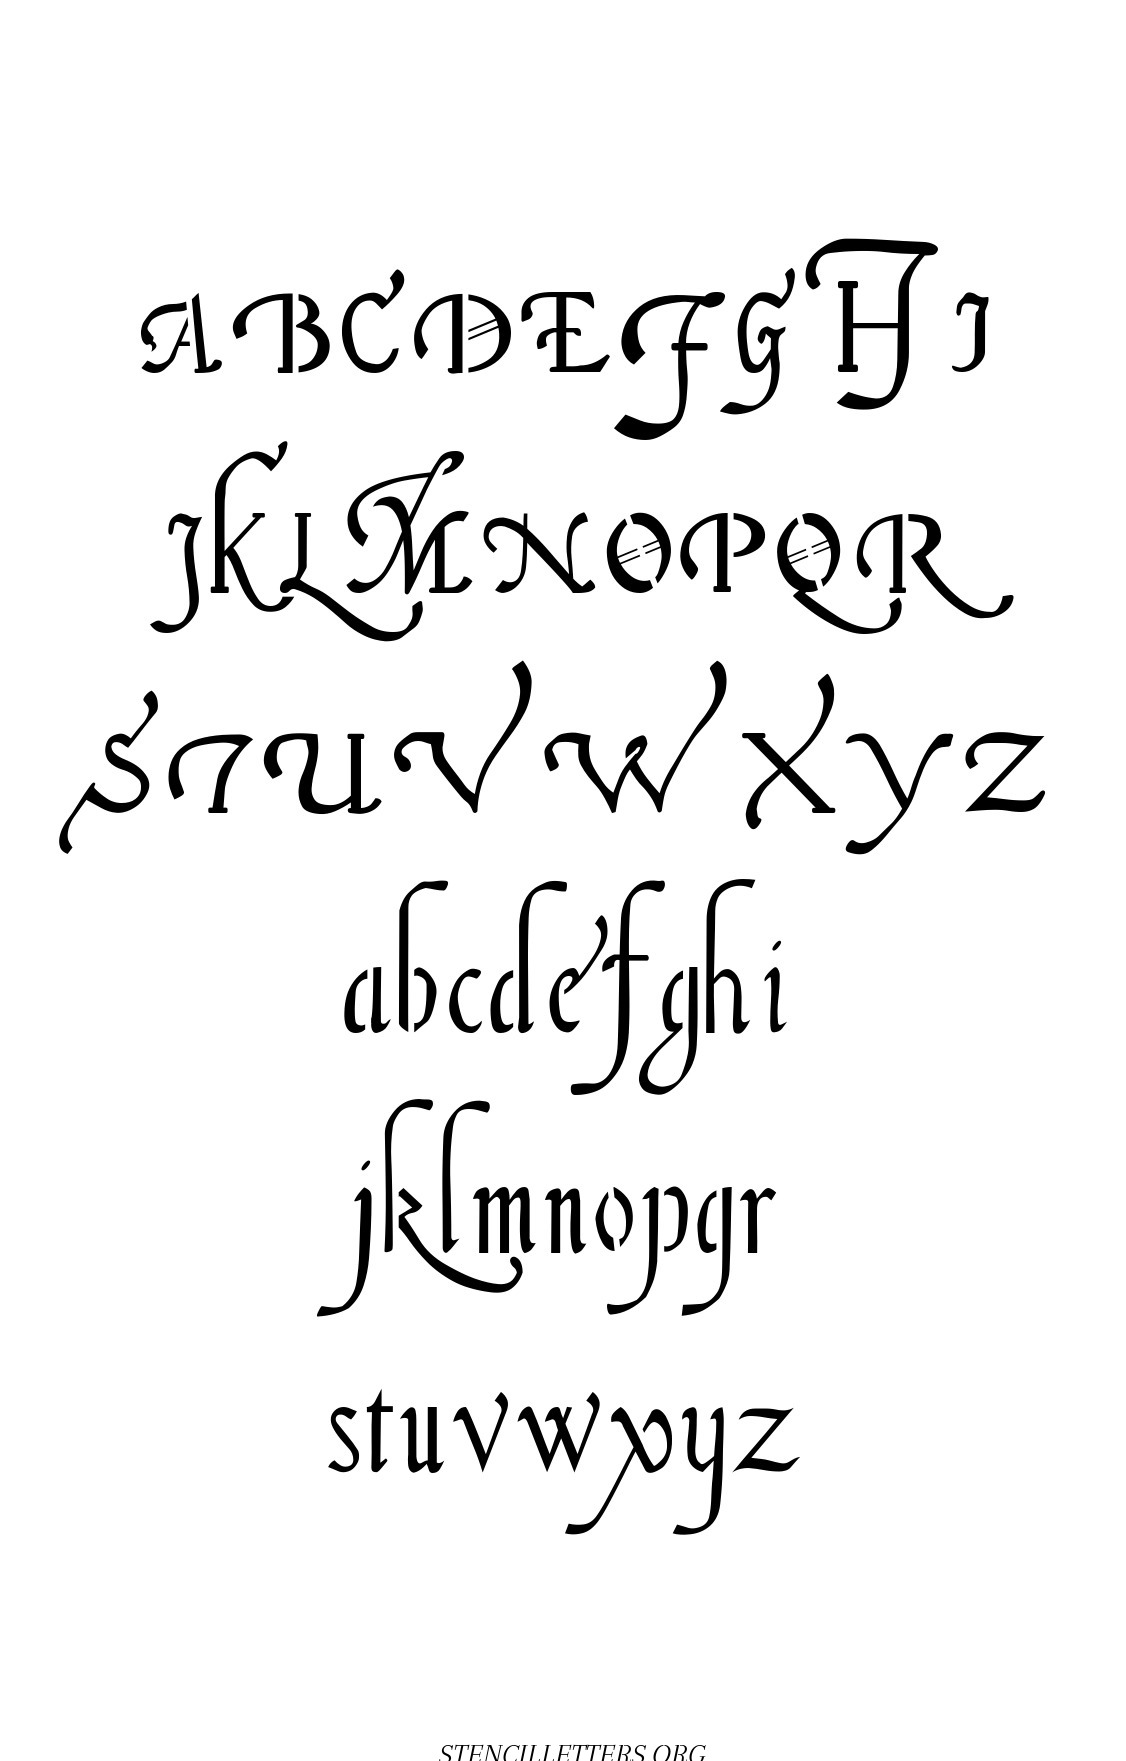 ABCDEFGHI
JKLMNOPQR
STUVWXYZ
abcdefghi
jklmnopqr
stuvwxyz
STENCILLETTERS.ORG